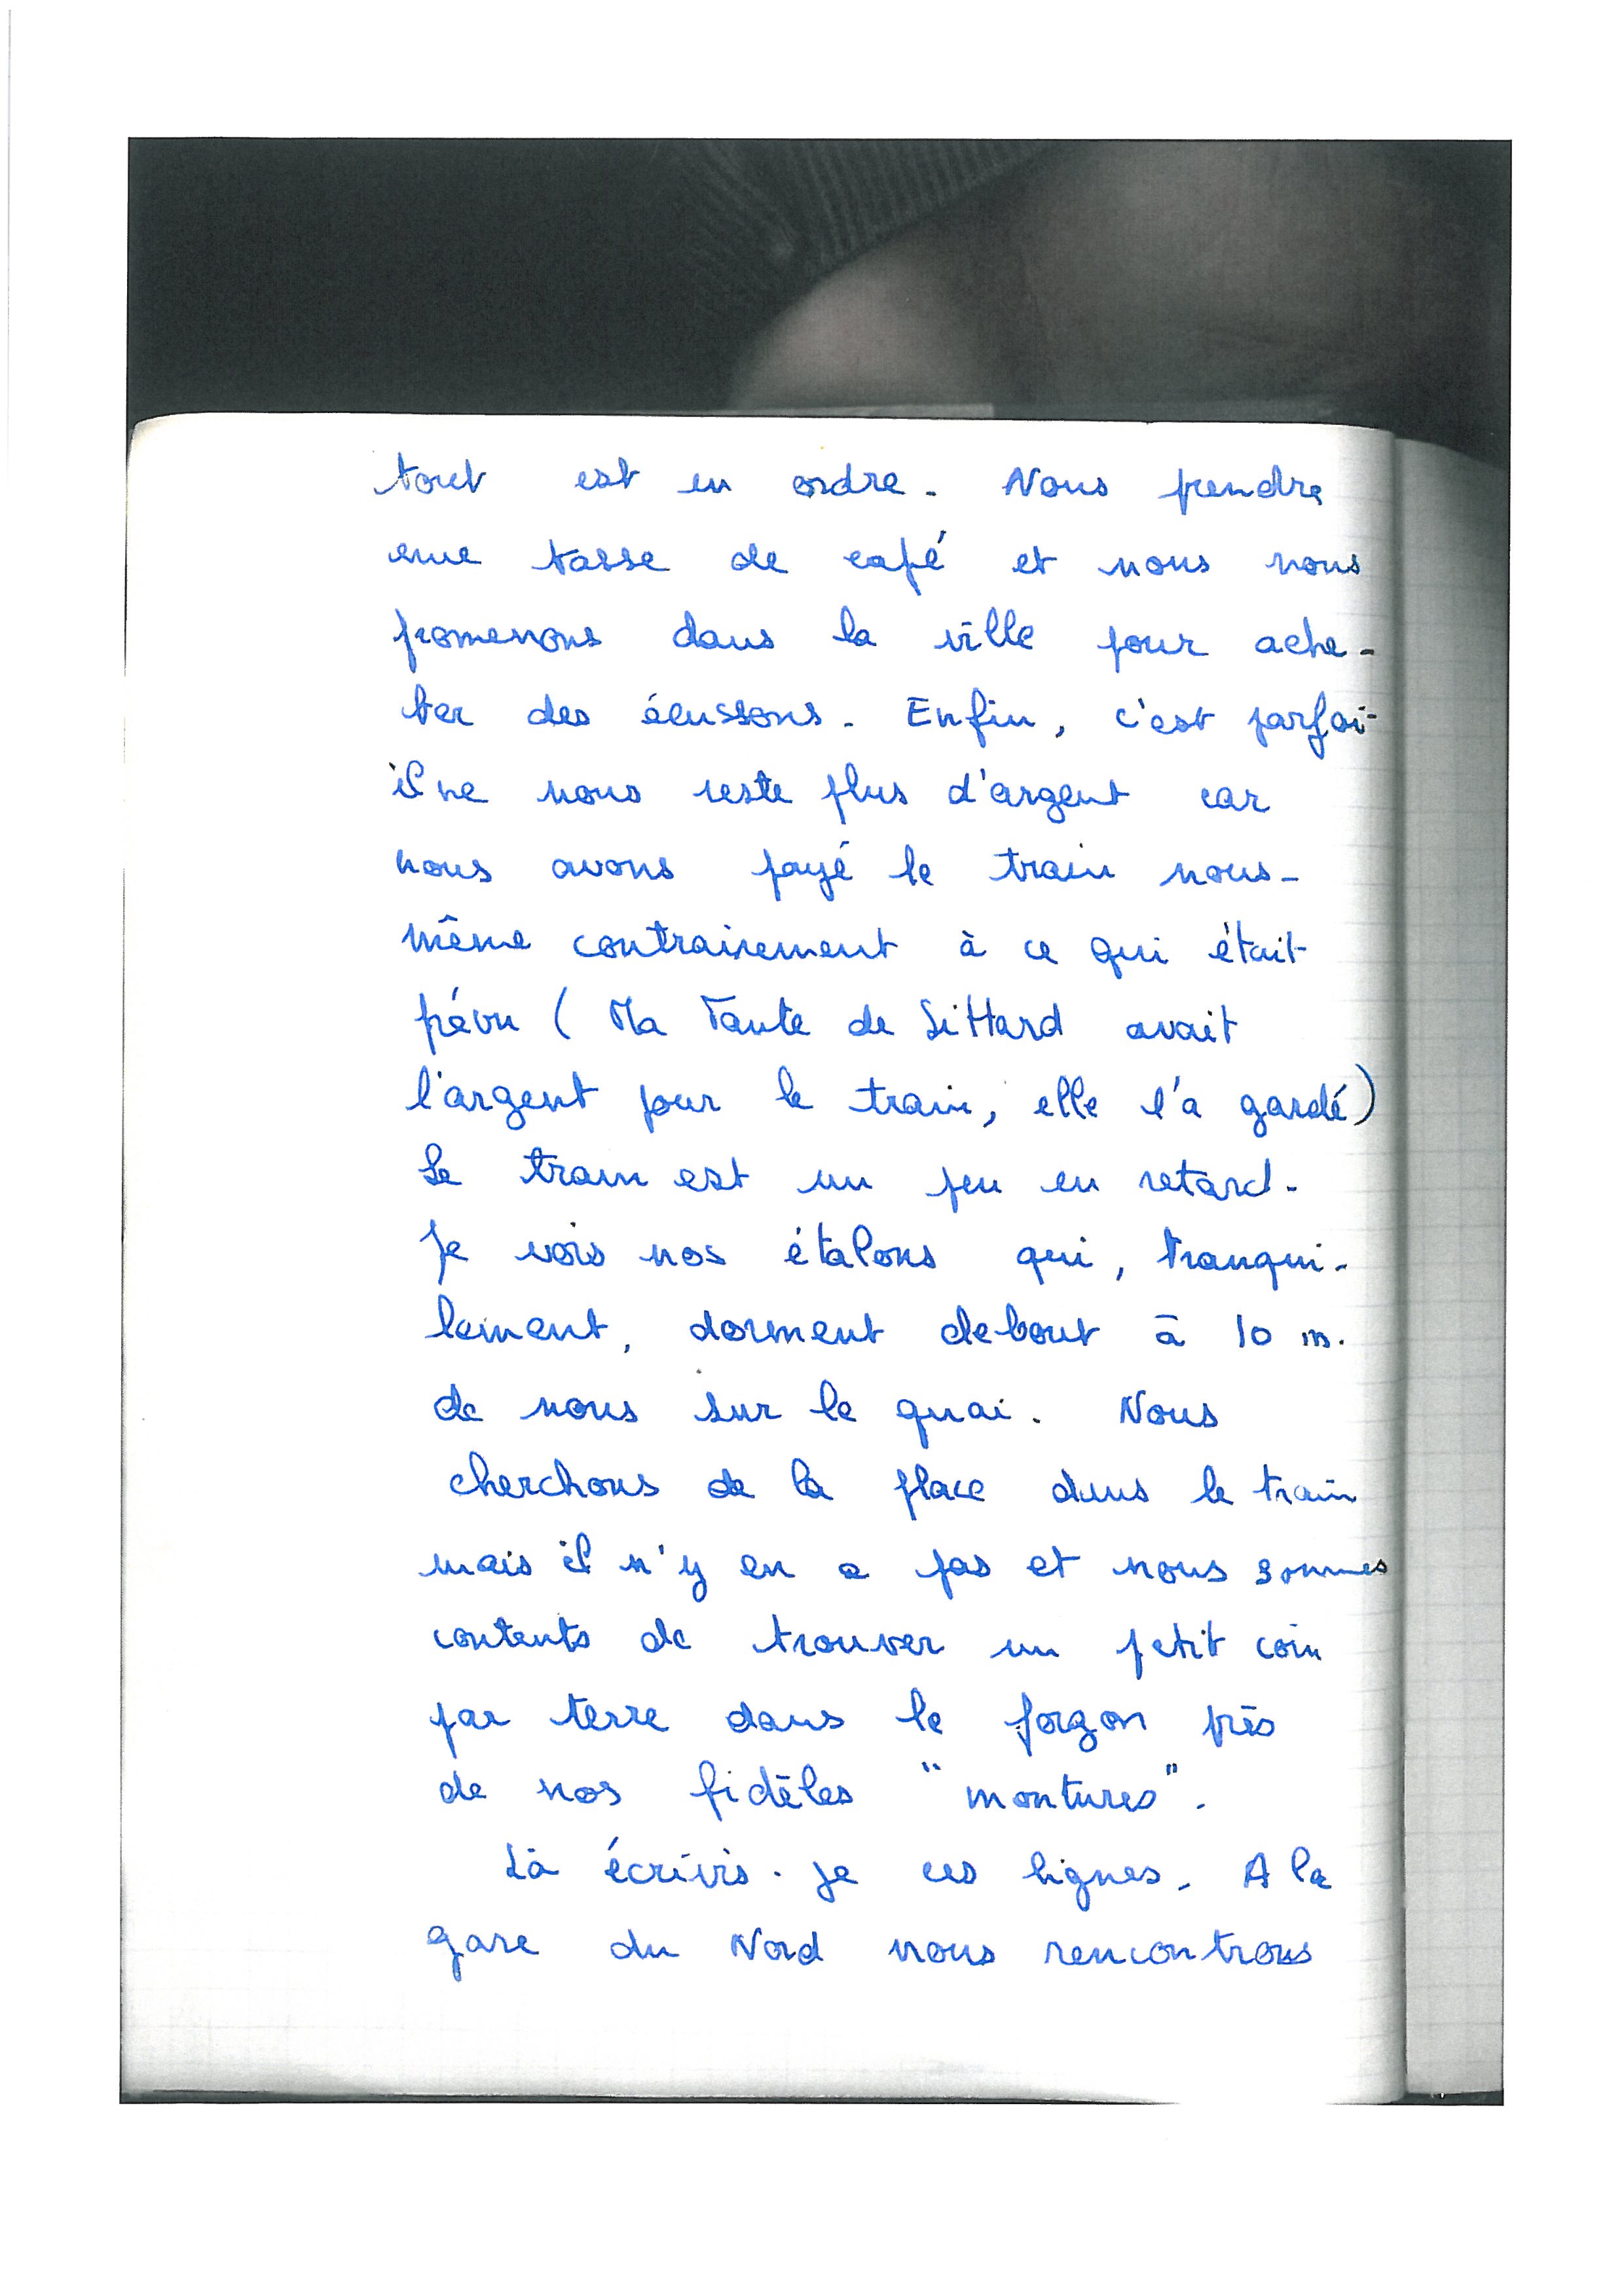 tout est en ordre. Nous prendre
une tasse de café et nous nous
promenons dans la ville pour ache-
ter des écussons. Enfin, c'est parfai-
il ne nous reste plus d'argent car
nous avons payé le train nous-
même contrairement à ce qui était
prévu ( Ma Tante de Sittard avait
l'argent pour le train, elle l'a gardé)
Le train est un peu en retard.
Je vois nos étalons qui, tranqui-
lement, dorment debout à 10 m.
de nous sur le quai. Nous
cherchons de la place dans le train
mais il n'y en a pas et nous sommes
contents de trouver un petit coin
par terre dans le forgon près
de nos fidèles "montures".
Là écrivis-je ces lignes. A la
gare du Nord nous rencontrons